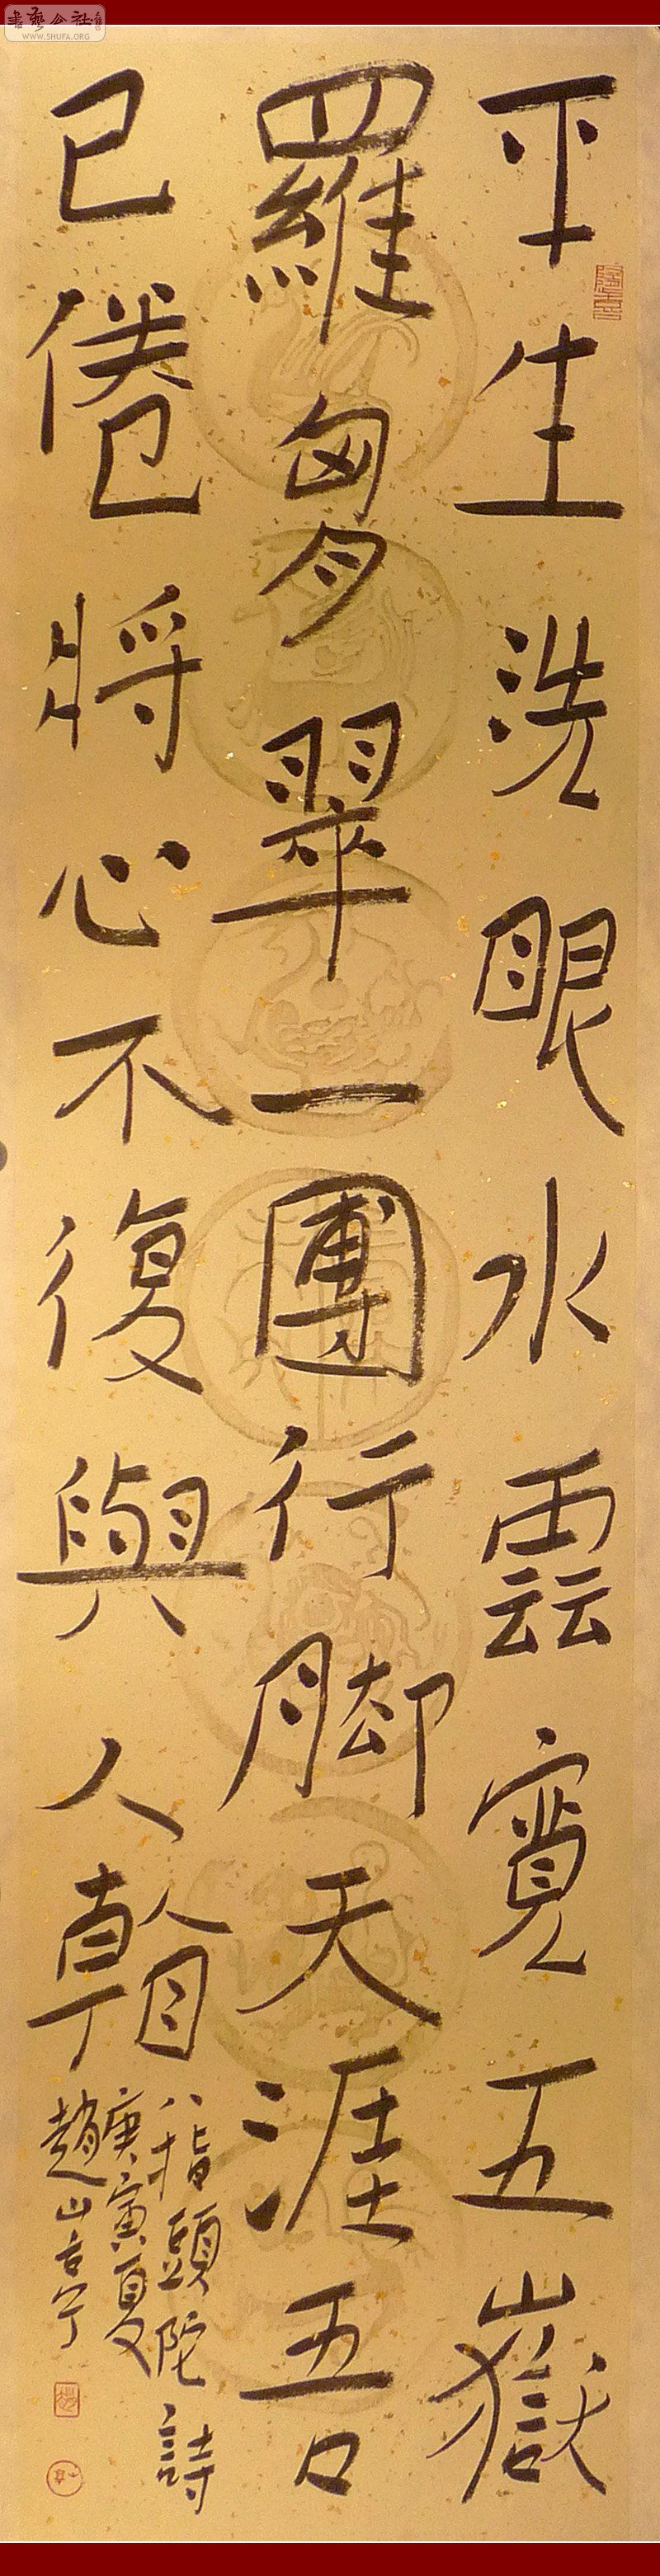 書藝公社
WWW.SHUFA.ORG
平生洗眼水雲寬五嶽
羅胷翠一團行脚天涯吾
已倦將心不復與人看
八指頭陀詩
庚寅夏
趙山亭